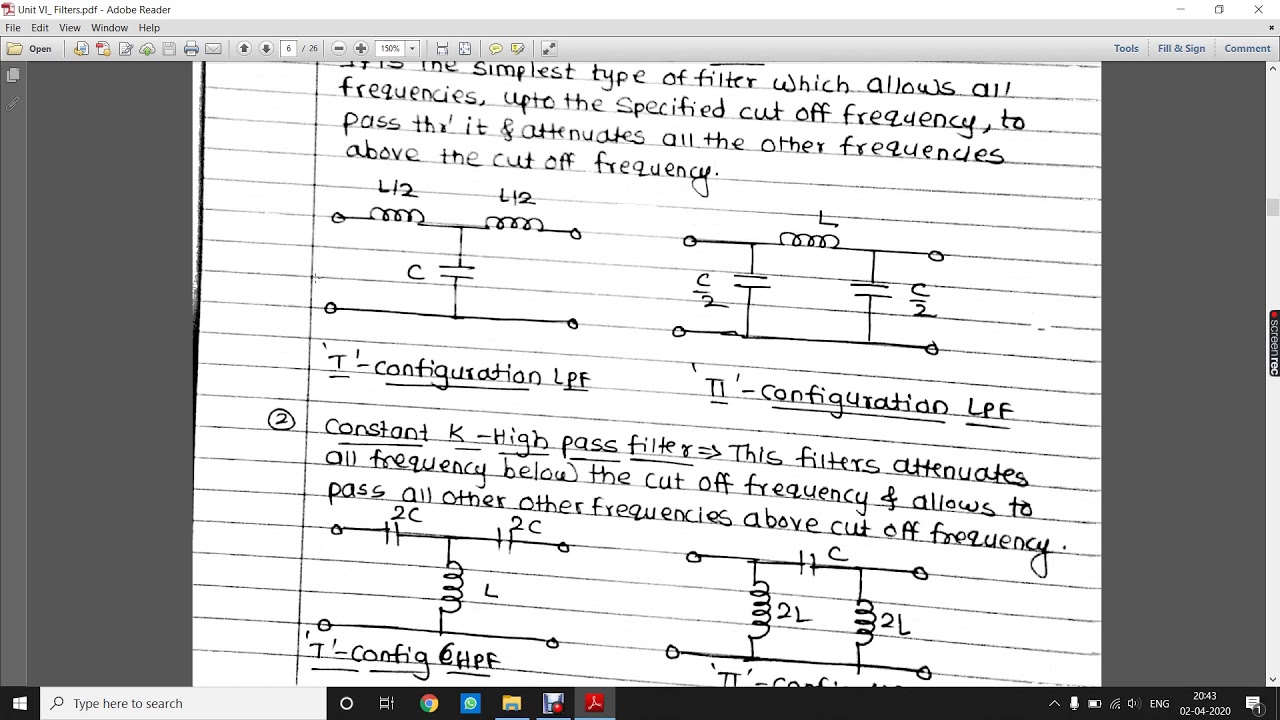 Unit VI_Filters.pdf - Adobe Reader
File Edit View Window Help
Open 6 / 26 150% Tools Fill & Sign Comment
It is the simplest type of filter which allows all
frequencies, upto the specified cut off frequency, to
pass thr' it & attenuates all the other frequencies
above the cut off frequency.
L/2 L/2
L
C
C/2 C/2
'T'-configuration LPF
'Π'-configuration LPF
② Constant K -High pass filter⇒ This filters attenuates
all frequency below the cut off frequency & allows to
pass all other other frequencies above cut off frequency.
2C 2C
C
L
2L 2L
'T'-config HPF
'Π'-config
screenrec
Type here to search
ENG
20:43
02-04-2020